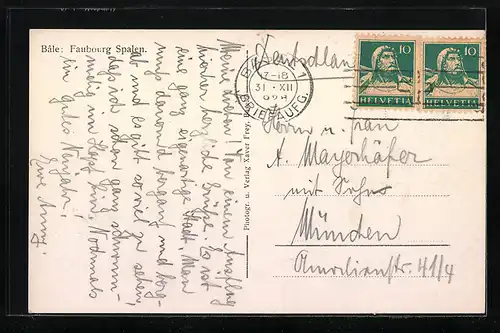 Bâle: Faubourg Spalen.
Meine Lieben! Von einem Ausflug
hierher herzliche Grüße. Es ist
eine ganz eigenartige Stadt. Man
muß dauernd bergauf und berg-
ab und es gibt so viel zu sehen,
daß ich schon ganz schwin-
delig im Kopf bin. Nochmals
ein gutes Neujahr!
Eure Anny.
Photogr. u. Verlag Xaver Frey,
Deutschland
17-18
31. XII
BRIEFAUFG.
10 10
HELVETIA HELVETIA
Herrn u. Frau
A. Mayerhöfer
mit Sohn
München
Amalienstr. 41/4